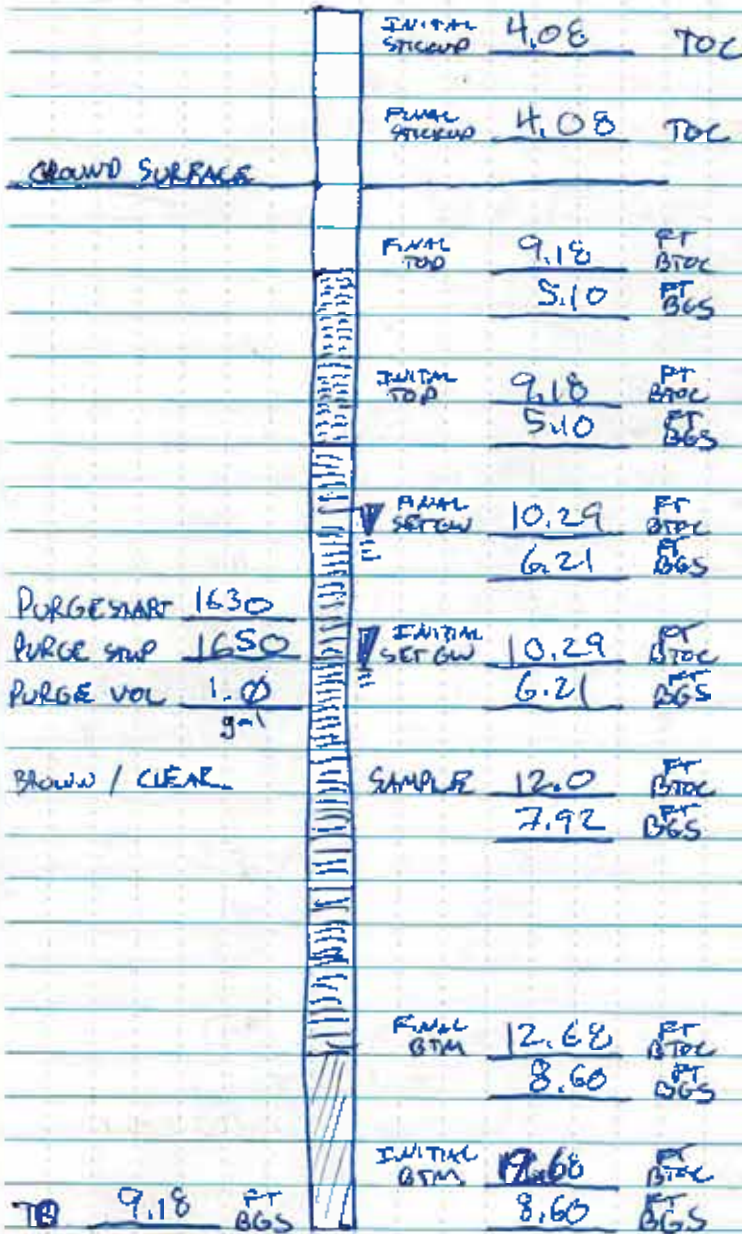 INITIAL STICKUP 4.08 TOC
FINAL STICKUP 4.08 TOC
GROUND SURFACE
FINAL TOP 9.18 FT BTOC
5.10 FT BGS
INITAL TOP 9.18 FT BTOC
5.10 FT BGS
FINAL SET GW 10.29 FT BTOC
6.21 FT BGS
PURGE START 1630
PURGE STOP 1650
INITIAL SET GW 10.29 FT BTOC
PURGE VOL 1.0 gal
6.21 FT BGS
BROWN / CLEAR
SAMPLE 12.0 FT BTOC
7.92 FT BGS
FINAL BTM 12.68 FT BTOC
8.60 FT BGS
INITIAL BTM 12.68 FT BTOC
TD 9.18 FT BGS
8.60 FT BGS